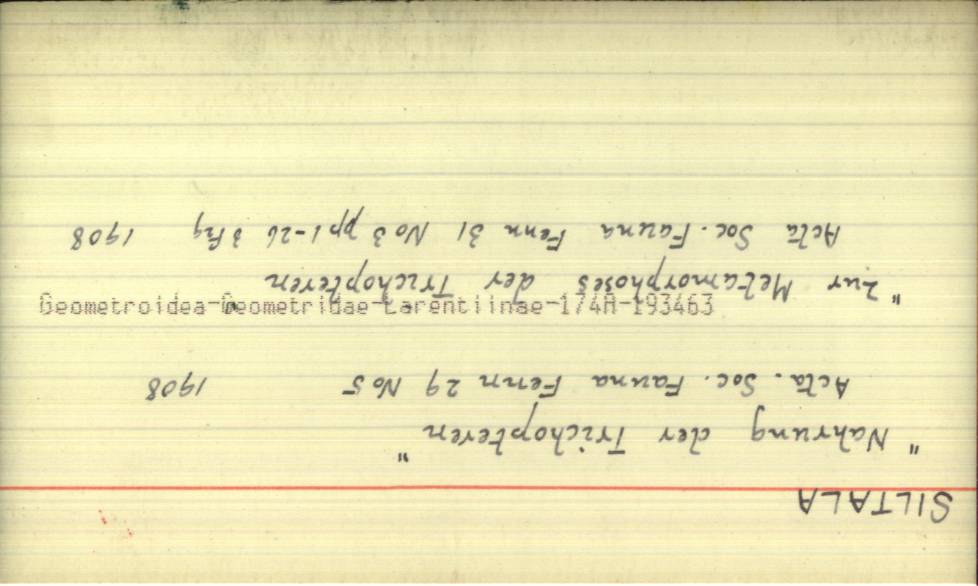 SILTALA
"Nahrung der Trichopteren"
Acta. Soc. Fauna Fenn 29 No5 1908
"Zur Metamorphoses der Trichopteren
Acta Soc. Fauna Fenn 31 No 3 pp1-26 3 fig 1908
Geometroidea-Geometridae-Larentiinae-174A-193463